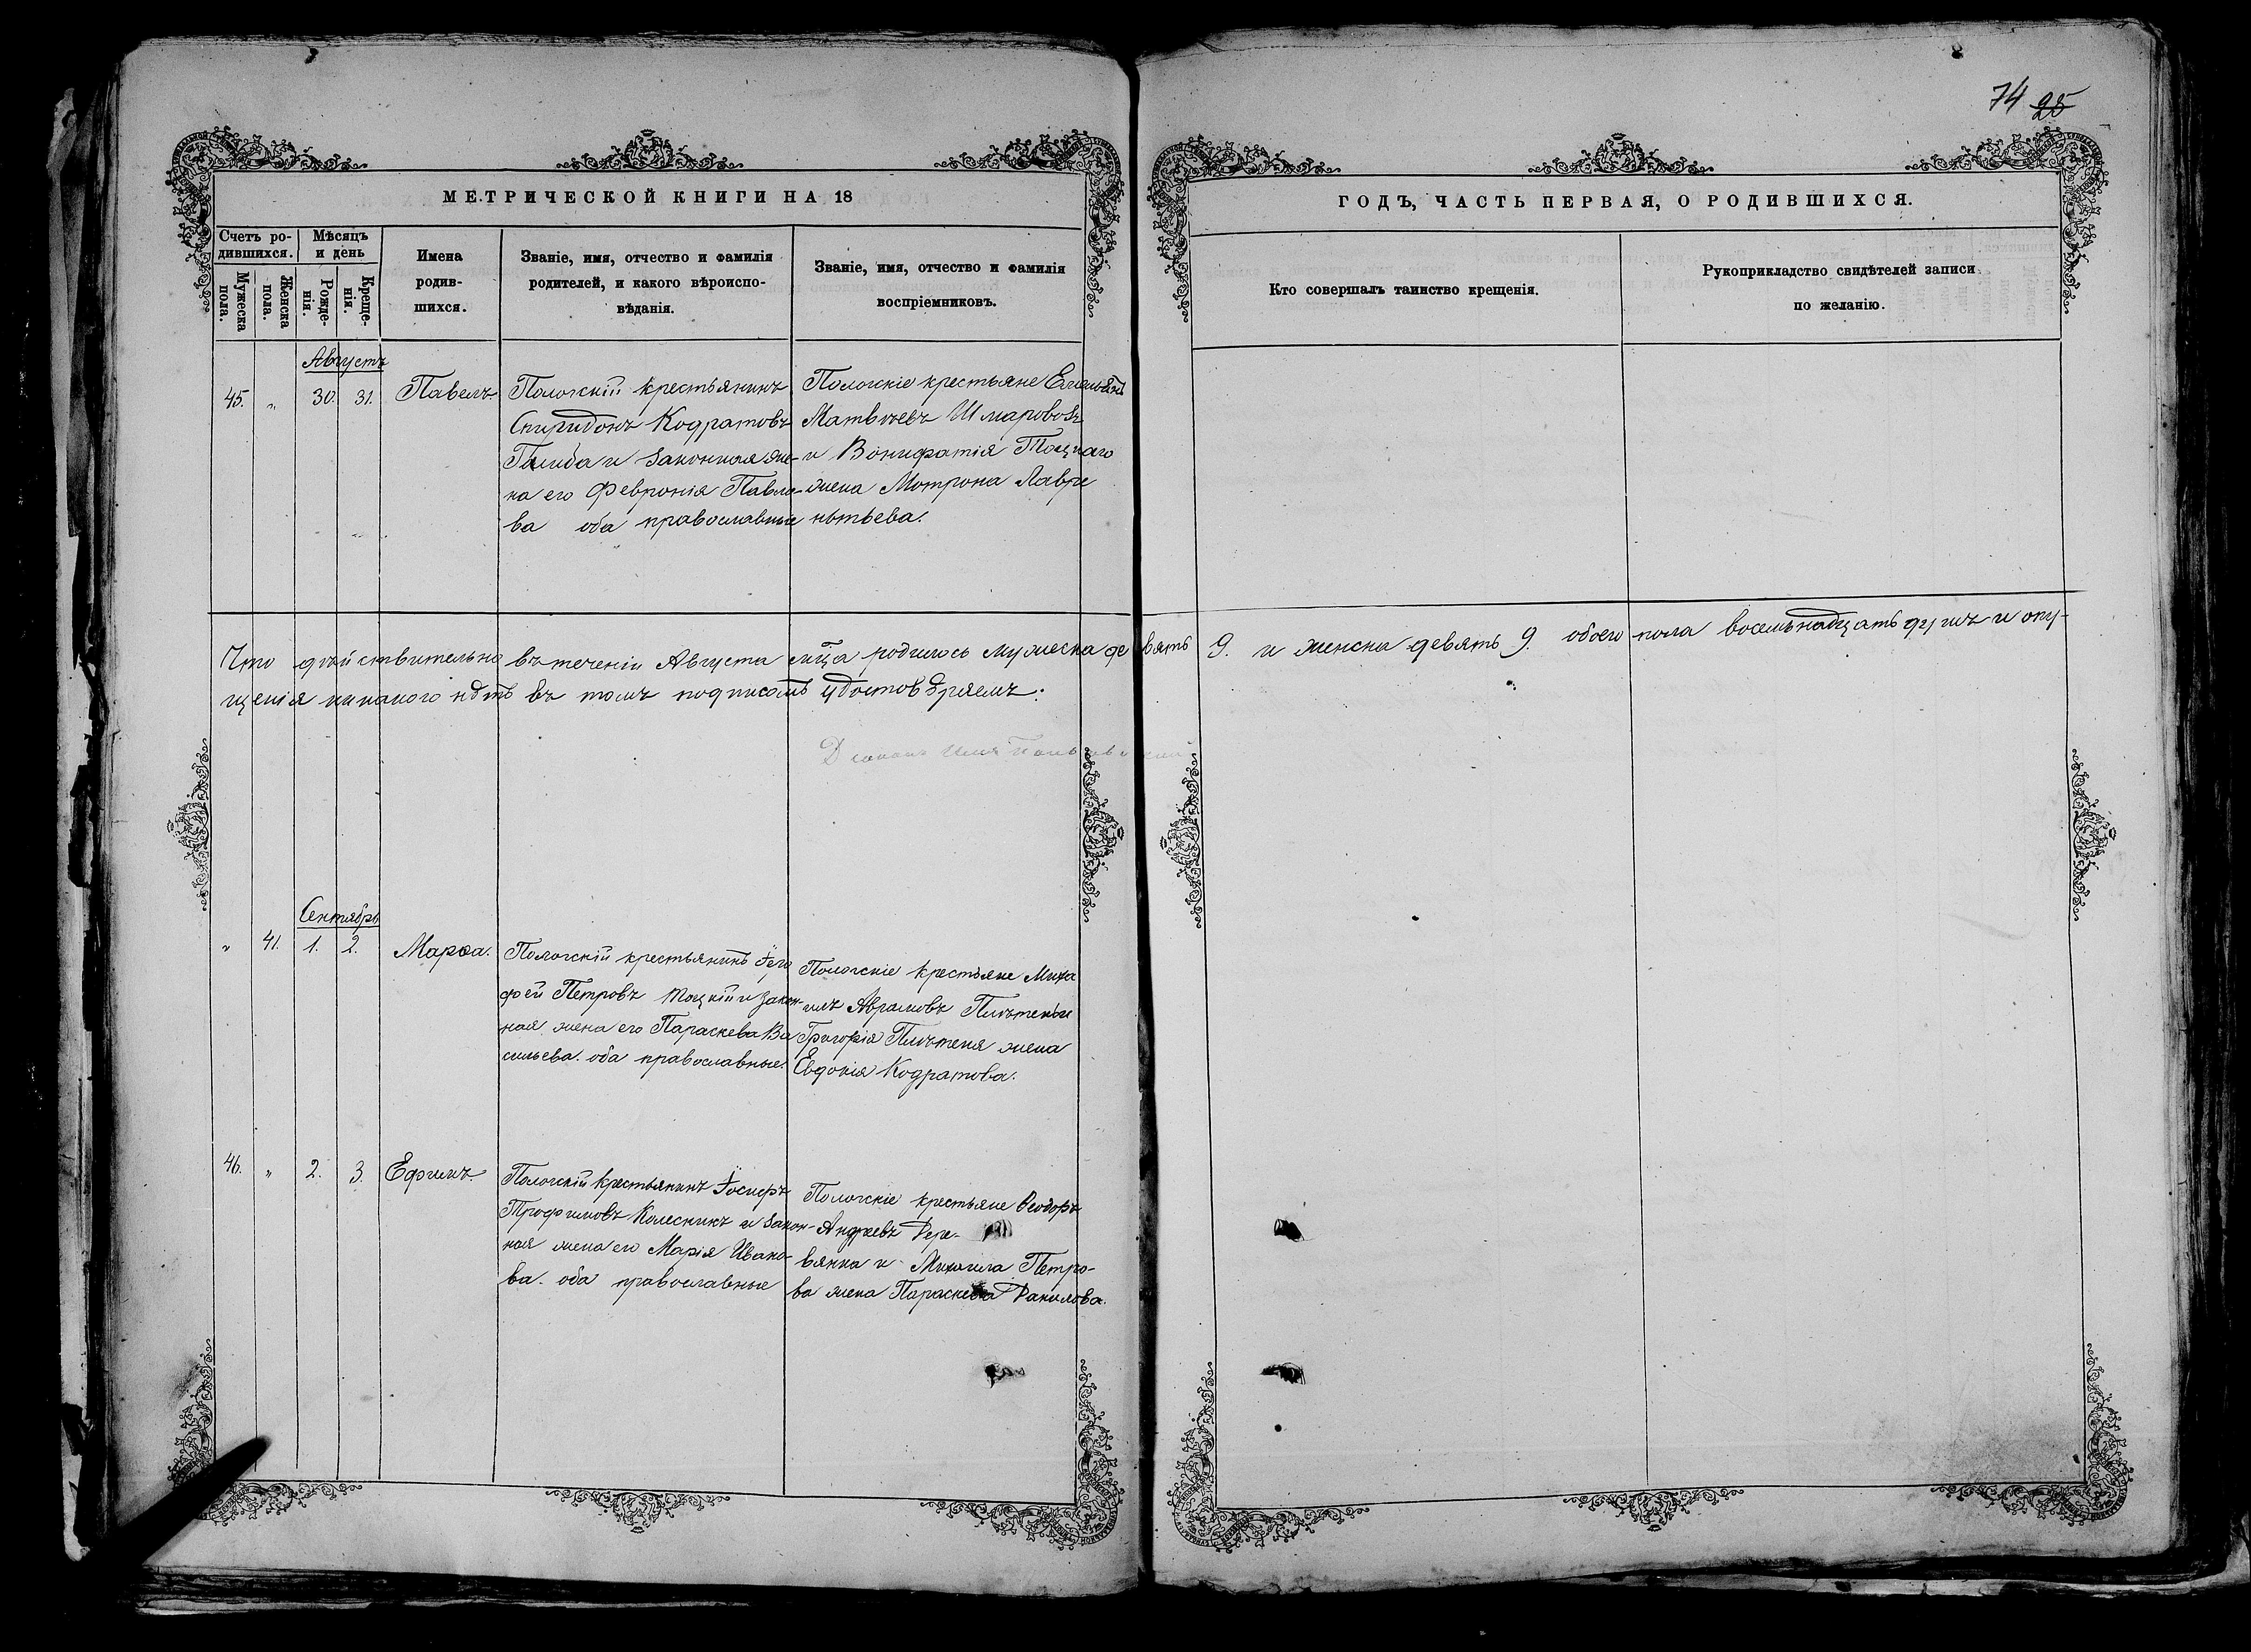 74 25
МЕТРИЧЕСКОЙ КНИГИ НА 18
ГОДЪ, ЧАСТЬ ПЕРВАЯ, О РОДИВШИХСЯ.
Счетъ ро-
дившихся.
Мужеска
пола.
Женска
пола.
Мѣсяцъ
и день
Рожде-
нія.
Креще-
нія.
Имена
родив-
шихся.
Званіе, имя, отчество и фамилія
родителей, и какого вѣроиспо-
вѣданія.
Званіе, имя, отчество и фамилія
воспріемниковъ.
Кто совершалъ таинство крещенія.
Рукоприкладство свидѣтелей записи
по желанію.
Августъ
45. " 30. 31. Павелъ
Пологскій крестьянинъ
Спиридонъ Кодратовъ
и законная же-
на его Февронія Павло-
ва оба православные
Пологскіе крестьяне Емельянъ
Матвѣевъ Шмаровозъ
и Вонифатія Тоцкаго
жена Мотрона Лавре
нтьева.
Что дѣйствительно въ теченіи Августа мца родилось мужеска девять 9. и женска девять 9. обоего пола восемьнадцать душъ и опу-
щенія никакого нѣтъ въ томъ подписомъ удостовѣряемъ:
Сентябрь
" 41. 1. 2. Марѳа.
Пологскій крестьянинъ Іеро
фей Петровъ Тоцкій и закон-
ная жена его Параскева Ва
сильева. оба православные.
Пологскіе крестьяне Миха
илъ Аврамовъ Плѣтень и
Григорія Плѣтеня жена
Евдокія Кодратова.
46. " 2. 3. Ефимъ.
Пологскій крестьянинъ Іосифъ
Трофимовъ Колесникъ и закон-
ная жена его Марія Ивано-
ва. оба православные
Пологскіе крестьяне Ѳеодоръ
Андреевъ Дере-
вянка и Михаила Петро-
ва жена Параскева Данилова.